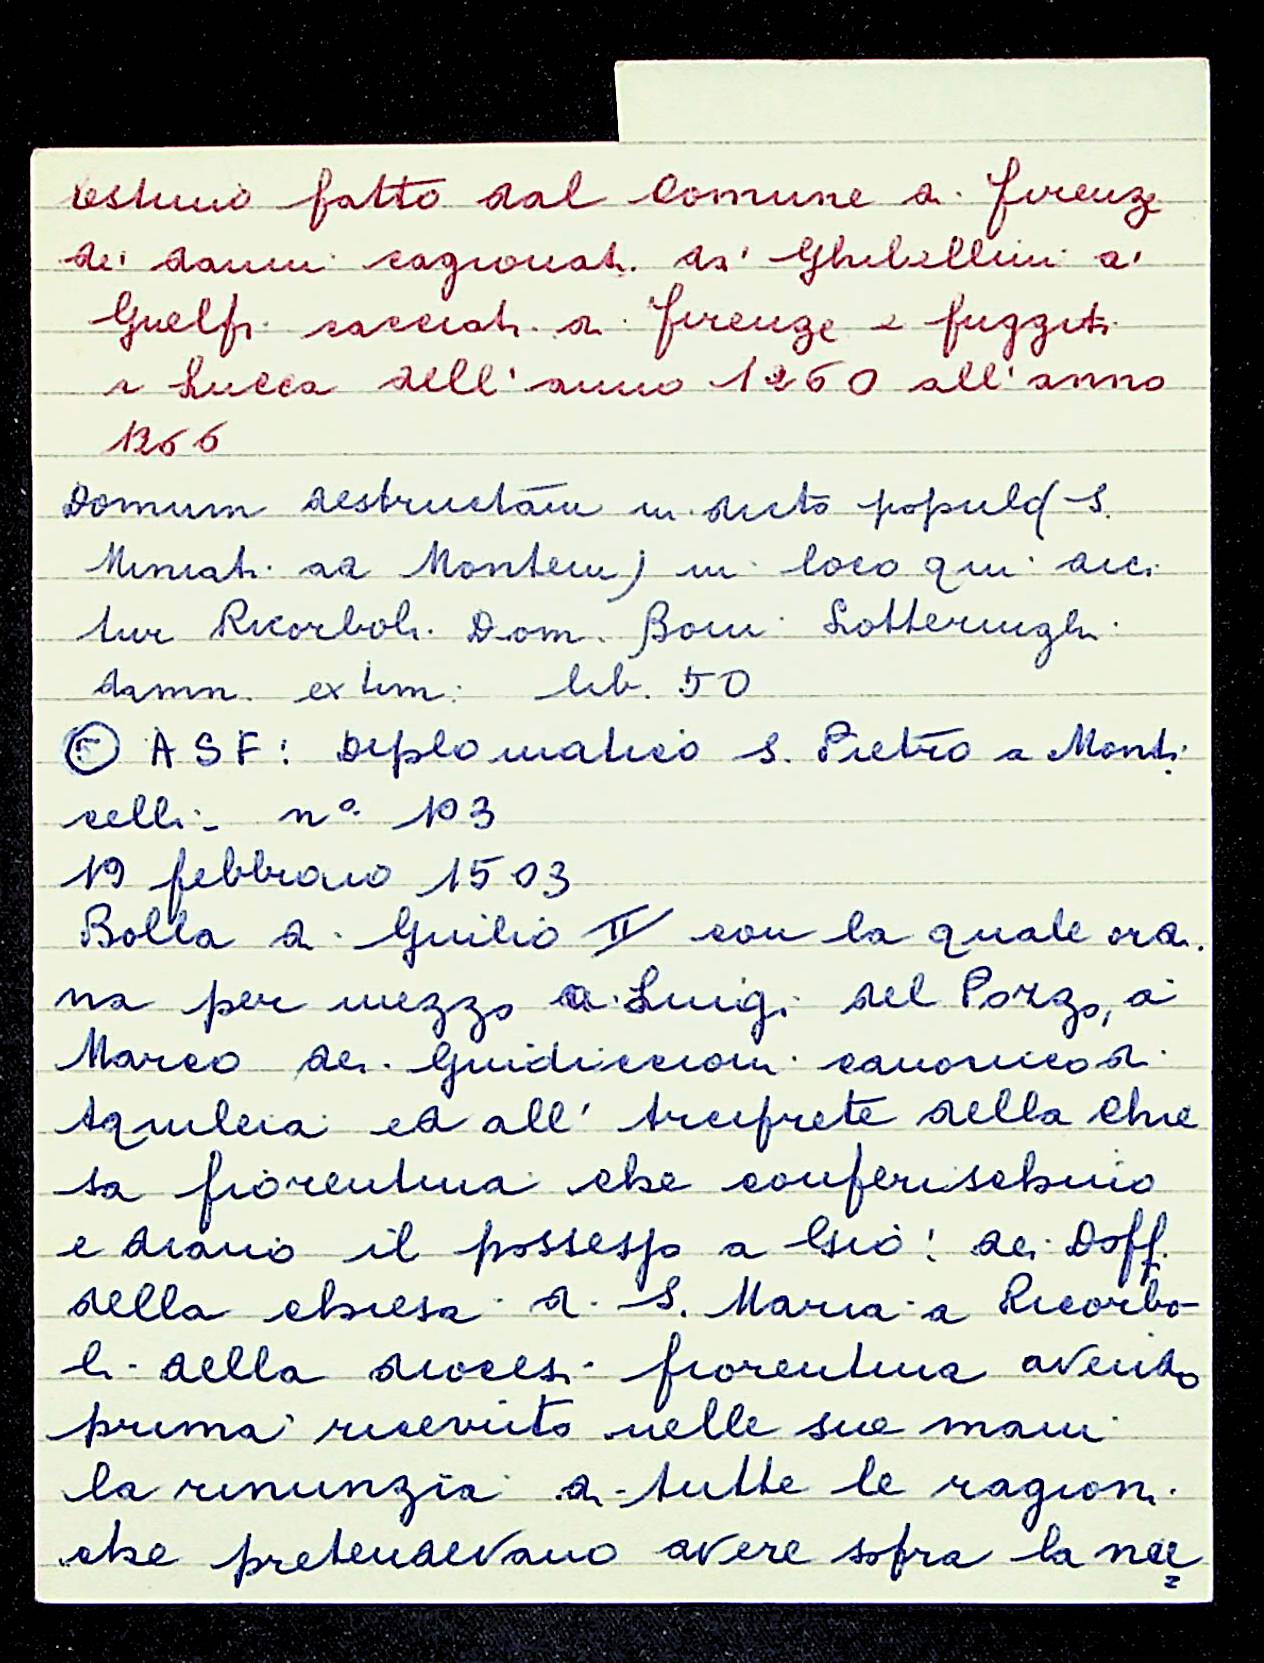 estimo fatto dal Comune di Firenze
dei danni cagionati da' Ghibellini a'
Guelfi cacciati di Firenze e fuggiti
a Lucca dell'anno 1260 all'anno
1266
Domum destructam in dicto populo (S.
Miniati ad Montem) in loco qui dici
tur Ricorboli Dom. Boni Lotteringhi
damn. extim: lib. 50
ASF: Diplomatico S. Pietro a Monti
celli - n° 103
19 febbraio 1503
Bolla di Guilio II con la quale ordi
na per mezzo di Luigi del Pozzo, a
Marco dei Guidiccioni canonico di
Aquileia ed all'Arciprete della Chie
sa fiorentina che conferischino
e diano il possesso a Gio: dei Doff.
della chiesa di S. Maria a Ricorbo-
li della diocesi fiorentina avendo
prima ricevuto nelle sue mani
la rinunzia di tutte le ragioni
che pretendevano avere sopra la